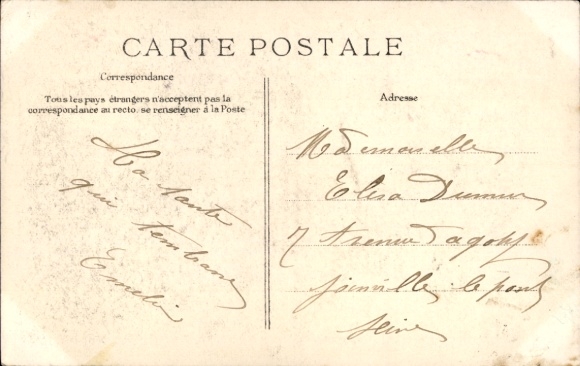 CARTE POSTALE
Correspondance
Tous les pays étrangers n'acceptent pas la
correspondance au recto. se renseigner à la Poste
Adresse
Ta tante
qui
Emelie
Mademoiselle
Elisa Dumur
7 Avenue
Joinville le pont
Seine